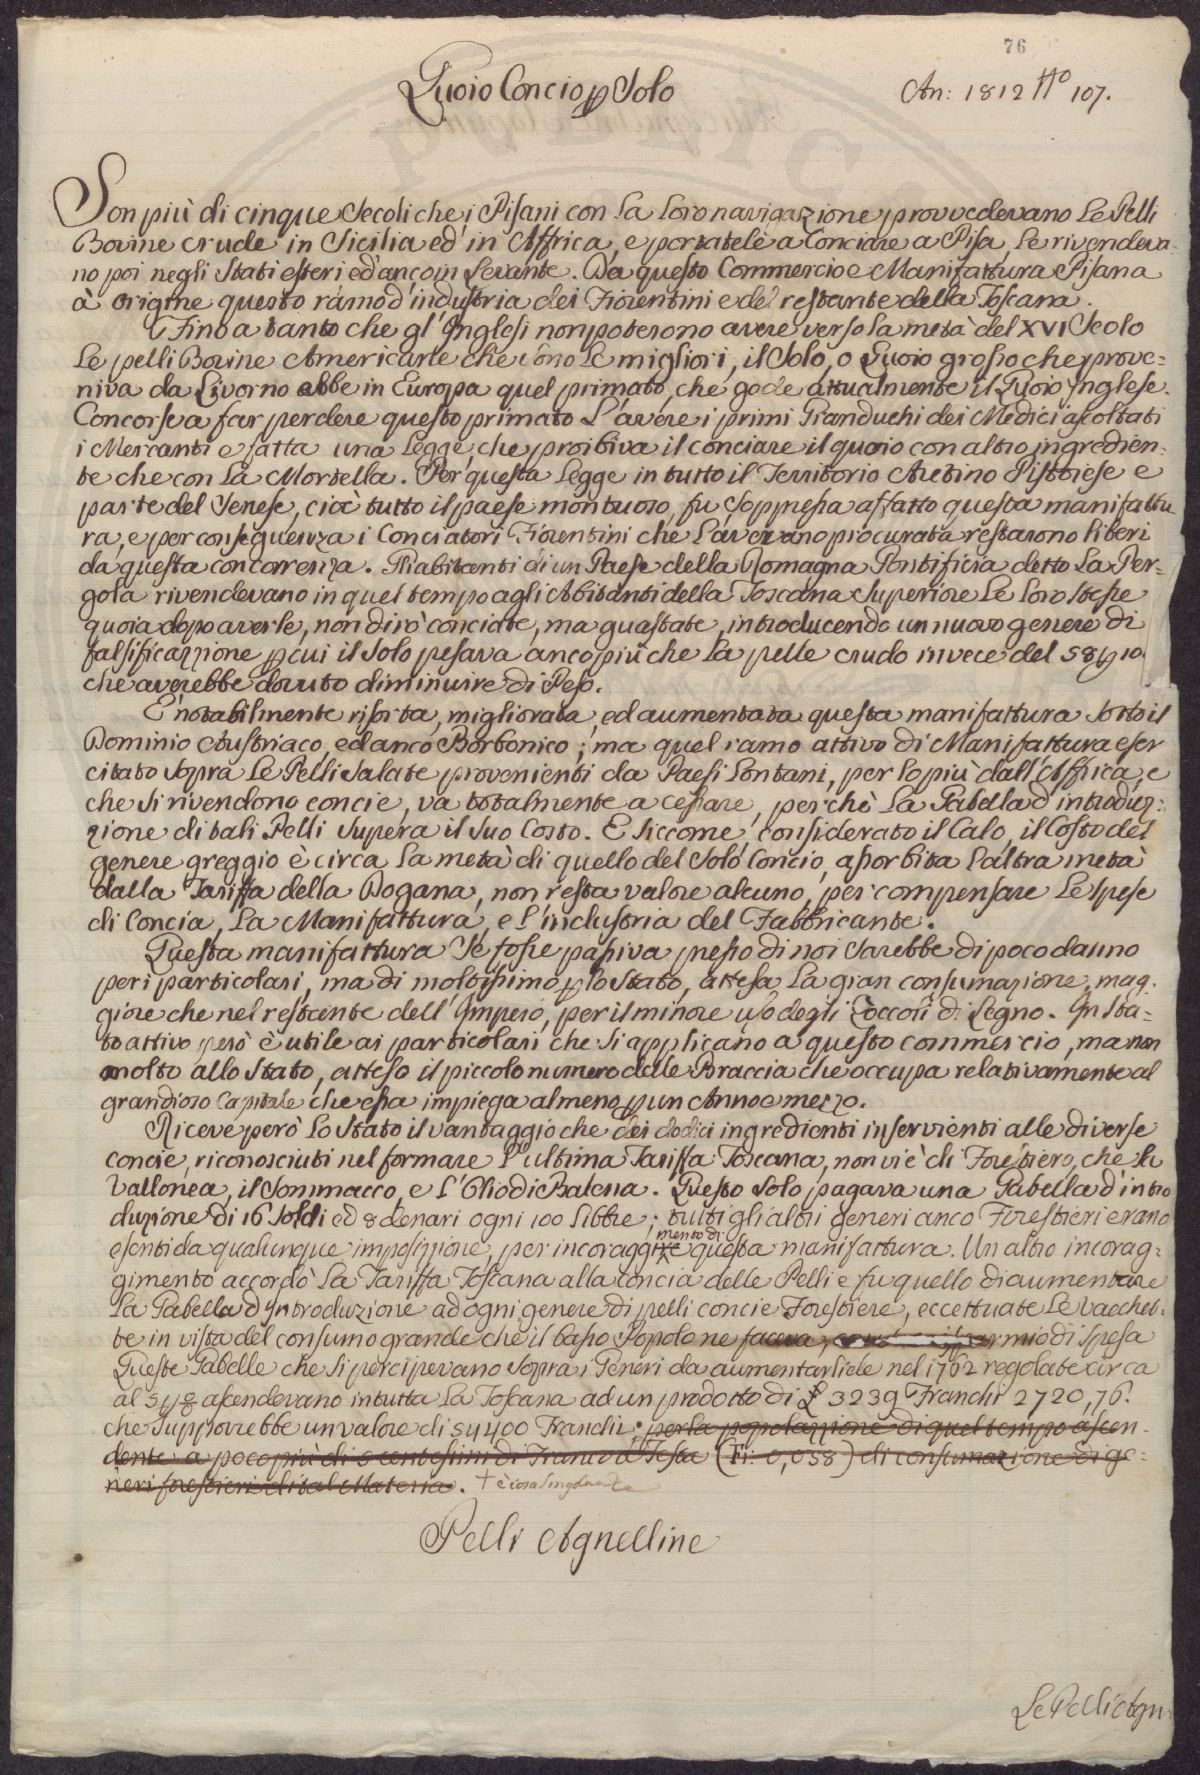 76
Quoio Concio p Solo
An: 1812 No 107.
Son più di cinque Secoli che i Pisani con la loro navigazione provvedevano le Pelli
Bovine crude in Sicilia ed in Affrica, e portatele a Conciare a Pisa le rivendeva-
no poi negli Stati esteri ed anco in Levante. Da questo Commercio e Manifattura Pisana
à origine questo ramo d'industria dei Fiorentini e del restante della Toscana.
Fino a tanto che gl'Inglesi non poterono avere verso la metà del XVI Secolo
le pelli Bovine Americane che sono le migliori, il Solo, o Quoio grosso che prove=
niva da Livorno ebbe in Europa quel primato, che gode attualmente il Quoio Inglese.
Concorse a far perdere questo primato l'avere i primi Granduchi dei Medici ascoltati
i Mercanti e fatta una Legge, che proibiva il conciare il quoio con altro ingredien-
te che con la Mortella. Per questa Legge in tutto il Territorio Aretino Pistoiese e
parte del Senese, cioè tutto il paese montuoso, fu soppressa affatto questa manifattu
ra, e per conseguenza i Conciatori Fiorentini che l'avevano procurata restarono liberi
da questa concorrenza. Gli abitanti di un Paese della Romagna Pontificia detto la Per-
gola rivendevano in quel tempo agli Abitanti della Toscana Superiore le loro stesse
quoia dopo averle, non dirò conciate, ma guastate, introducendo un nuovo genere di
falsificazzione p cui il Solo pesava anco più che la pelle cruda invece del 58 p
che averebbe dovuto diminuire di Peso.
È notabilmente risorta, migliorata, ed aumentata questa manifattura sotto il
Dominio Austriaco, ed anco Borbonico; ma quel ramo attivo di Manifattura eser
citato sopra le Pelli Salate provenienti da Paesi Lontani, per lo più dall'Affrica, e
che si rivendono concie, va totalmente a cessare, perchè la Gabella d'introduz-
zione di tali Pelli supera il suo Costo. E siccome, considerato il Calo, il Costo del
genere greggio è circa la metà di quello del Solo Concio, assorbita l'altra metà
dalla Tariffa della Dogana, non resta valore alcuno, per compensare le spese
di Concia, la Manifattura, e l'industria del Fabbricante.
Questa manifattura se fosse passiva presso di noi sarebbe di poco danno
per i particolari, ma di moltissimo p lo Stato, attesa la gran consumazione, mag-
giore che nel restante dell'Impero, per il minore uso degli Zoccoli di Legno. In Sta=
to attivo però è utile ai particolari che si applicano a questo commercio, ma non
molto allo Stato, atteso il piccolo numero delle Braccia che occupa relativamente al
grandioso Capitale che essa impiega almeno p un Anno e mezzo.
Riceve però lo Stato il vantaggio che dei dodici ingredienti inservienti alle diverse
concie, riconosciuti nel formare l'ultima Tariffa Toscana, non vi è di Forestiero, che la
Vallonea, il Sommacco, e l'Olio di Balena. Questo solo pagava una Gabella d'intro
duzione di 16 Soldi ed 8 denari ogni 100 Libbre; tutti gli altri generi anco Forestieri erano
esenti da qualunque imposizzione, per incoraggi mento di questa manifattura. Un altro incorag=
gimento accordò la Tariffa Toscana alla concia delle Pelli e fu quello di aumentare
la Gabella d'Introduzione ad ogni genere di pelli concie Forestiere, eccettuate le vacchet-
te in vista del consumo grande che il basso Popolo ne faceva, armio di spesa
Queste Gabelle che si percipevano sopra i Generi da aumentarsi nel 1762 regolate circa
al 5 p ascendevano in tutta la Toscana ad un prodotto di £ 3239 Franchi 2720,76.
che supporrebbe un valore di 54400 Franchi; per la popolazzione di quel tempo ascen-
dente a poco più di 5 centesimi di Franco a Testa (Fi: 0,058) di consumazione di ge=
neri forestieri di tal Materia. † è cosa
Pelli Agnelline
Le Pelli Agn